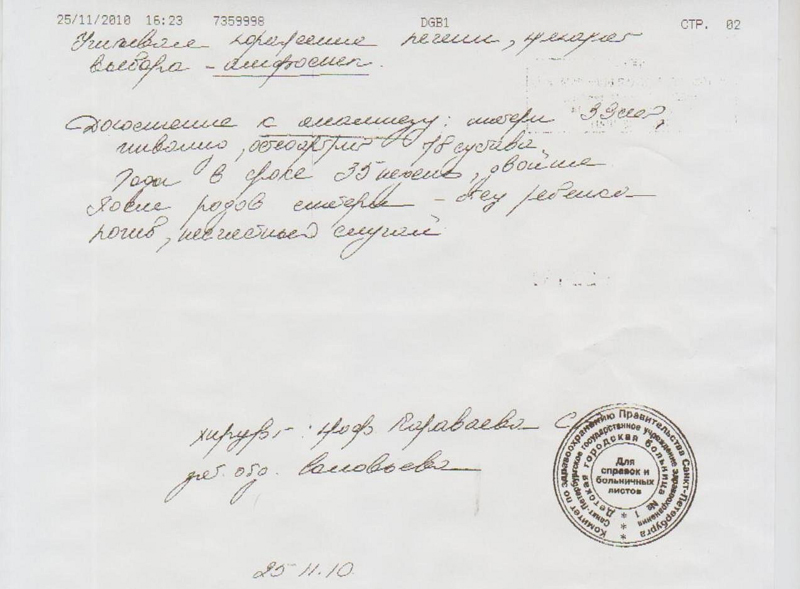 25/11/2010 16:23 7359998 DGB1 СТР. 02
Учитывая поражение печени,
выбора –
Дополнение к анамнезу: матери 33
осеоартрит т/б сустава.
Роды в сроке 35 недель, двойня
После родов матери – отец ребенка
погиб, несчастный случай
хирург: проф Караваева С
зав. отд. Соловьева
25 11.10
Комитет по здравоохранению Правительства Санкт-Петербурга
Санкт-Петербургское государственное учреждение здравоохранения
* Детская городская больница № 1 *
Для
справок и
больничных
листов